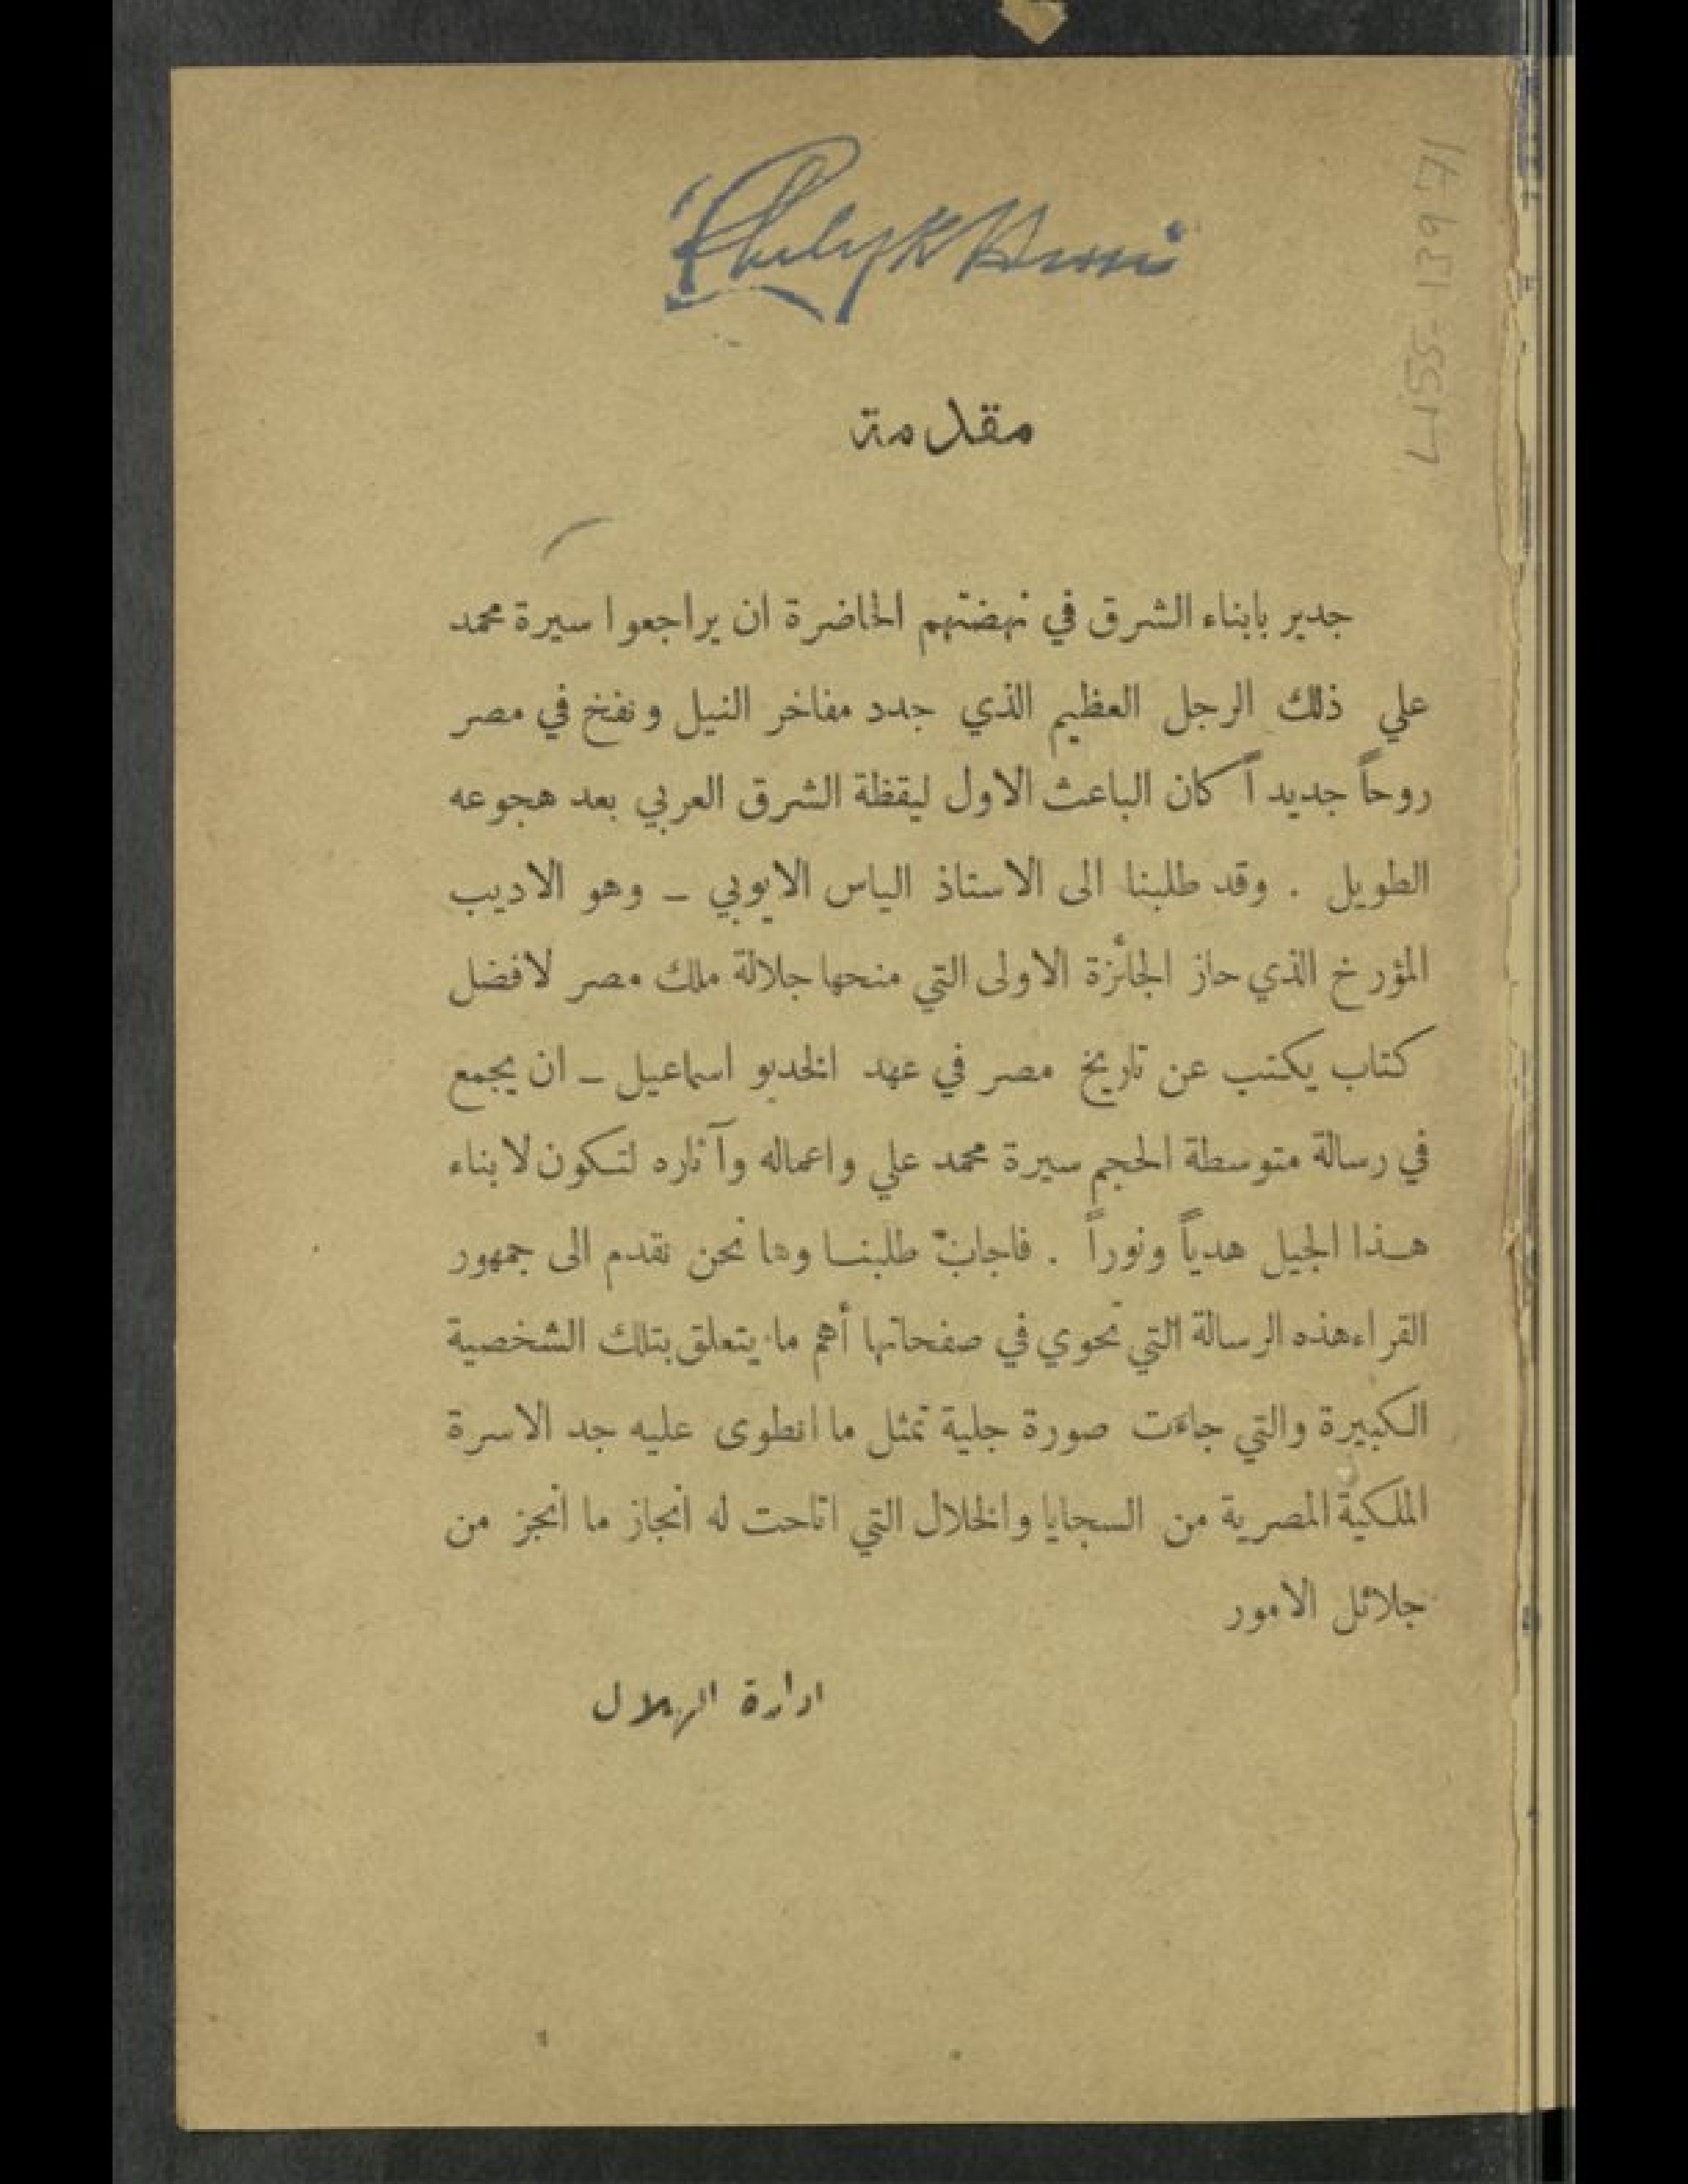 مقدمة
جدير بابناء الشرق في نهضتهم الحاضرة ان يراجعوا سيرة محمد
علي ذلك الرجل العظيم الذي جدد مفاخر النيل ونفخ في مصر
روحاً جديداً كان الباعث الاول ليقظة الشرق العربي بعد هجوعه
الطويل . وقد طلبنا الى الاستاذ الياس الايوبي - وهو الاديب
المؤرخ الذي حاز الجائزة الاولى التي منحها جلالة ملك مصر لافضل
كتاب يكتب عن تاريخ مصر في عهد الخديو اسماعيل - ان يجمع
في رسالة متوسطة الحجم سيرة محمد علي واعماله وآثاره لتكون لابناء
هذا الجيل هدياً ونوراً . فاجاب طلبنا وها نحن نقدم الى جمهور
القراء هذه الرسالة التي تحوي في صفحاتها أهم ما يتعلق بتلك الشخصية
الكبيرة والتي جاءت صورة جلية تمثل ما انطوى عليه جد الاسرة
الملكية المصرية من السجايا والخلال التي اتاحت له انجاز ما انجز من
جلائل الامور
ادارة الهلال